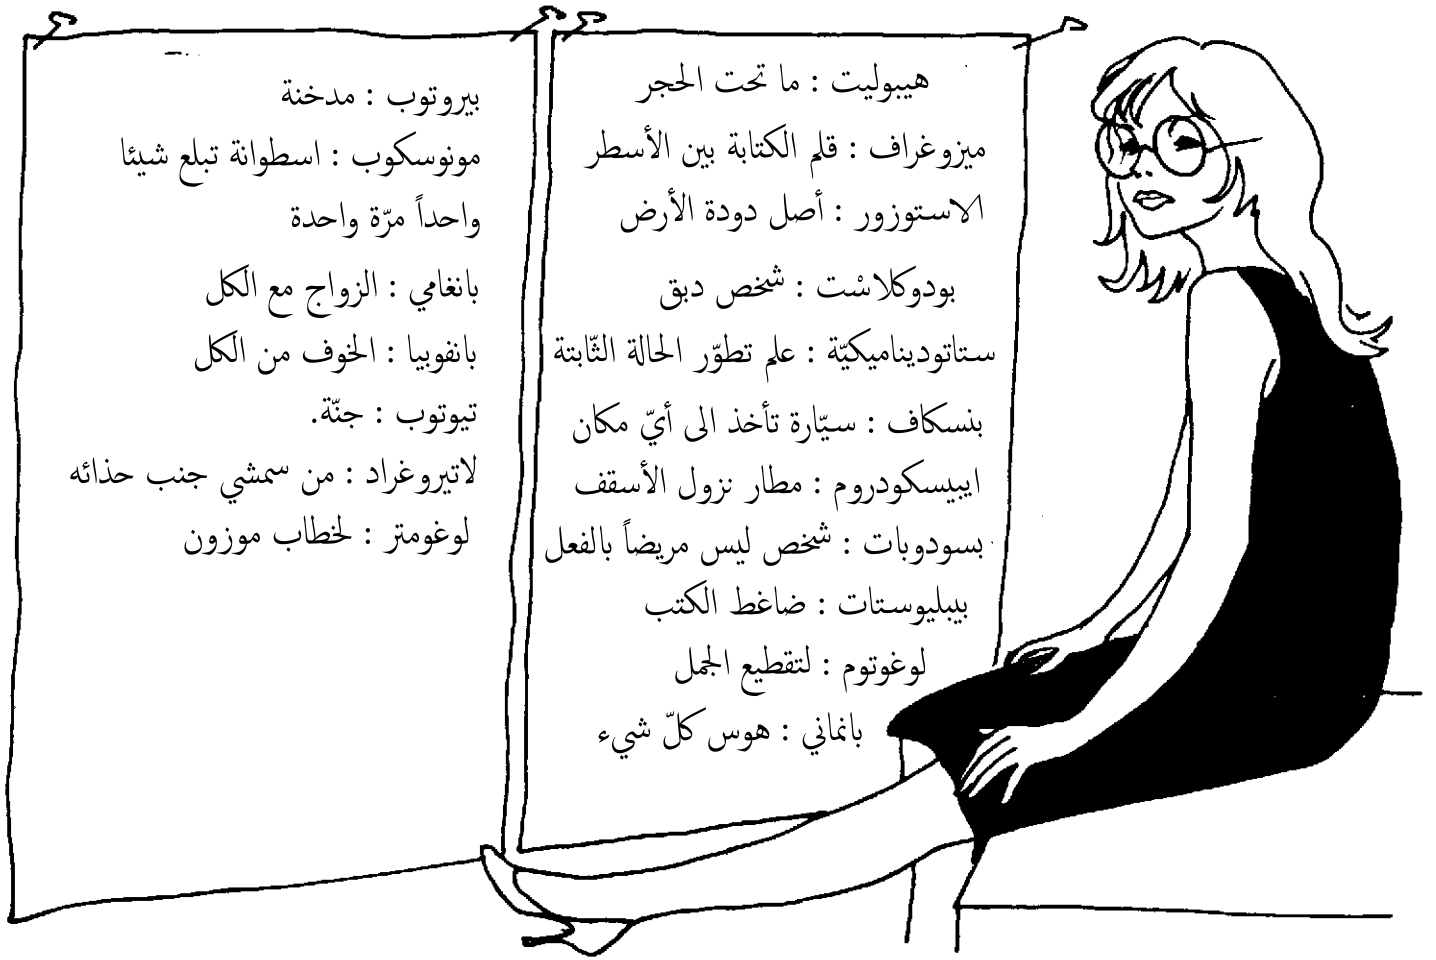 هيبوليت : ما تحت الحجر
ميزوغراف : قلم الكتابة بين الأسطر
الاستوزور : أصل دودة الأرض
بودوكلاسْت : شخص دبق
ستاتوديناميكيّة : علم تطوّر الحالة الثّابتة
بنسكاف : سيّارة تأخذ الى أيّ مكان
ايبيسكودروم : مطار نزول الأسقف
بسودوبات : شخص ليس مريضاً بالفعل
بيبليوستات : ضاغط الكتب
لوغوتوم : لتقطيع الجمل
بانماني : هوس كلّ شيء
بيروتوب : مدخنة
مونوسكوب : اسطوانة تبلع شيئا
واحداً مرّة واحدة
بانغامي : الزواج مع الكل
بانفوبيا : الخوف من الكل
تيوتوب : جنّة.
لاتيروغراد : من سمشي جنب حذائه
لوغومتر : لخطاب موزون